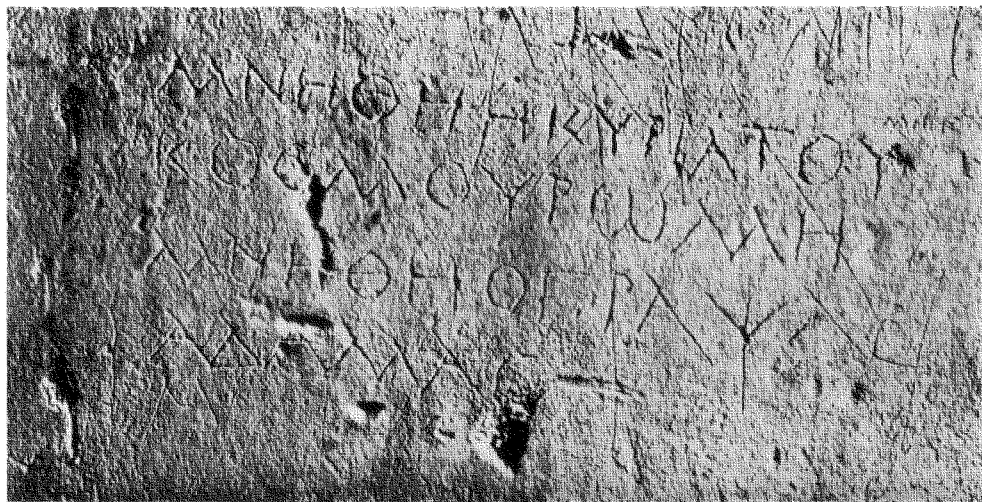 ΜΝΗΘΗ Η ΚΥΡΙΑ ΤΟΥ
ΚΟCΜΟΥ ΡΩΜΗ
ΜΝΗΘΗ Ο ΓΡΑΨΑC